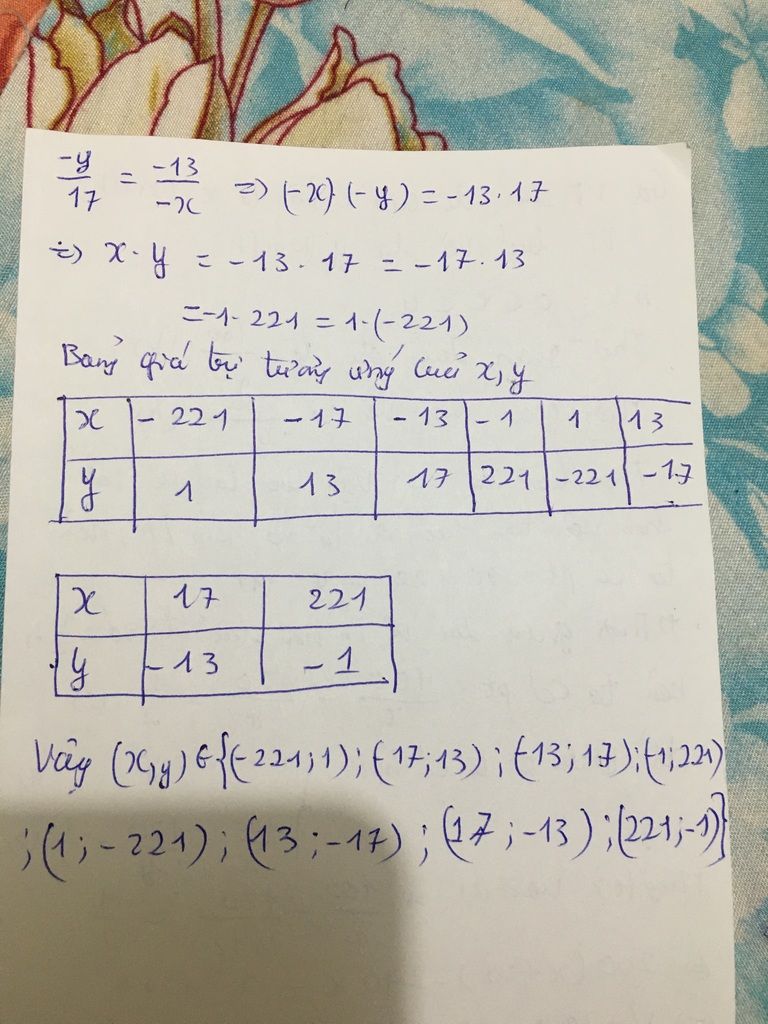 -y/17 = -13/-x => (-x)(-y) = -13.17
=> x.y = -13.17 = -17.13
=-1.221 = 1.(-221)
Bảng giá trị tương ứng của x,y
x -221 -17 -13 -1 1 13
y 1 13 17 221 -221 -17
x 17 221
y -13 -1
Vậy (x,y)∈{(-221;1);(-17;13);(-13;17);(-1;221)
;(1;-221);(13;-17);(17;-13);(221;-1)}